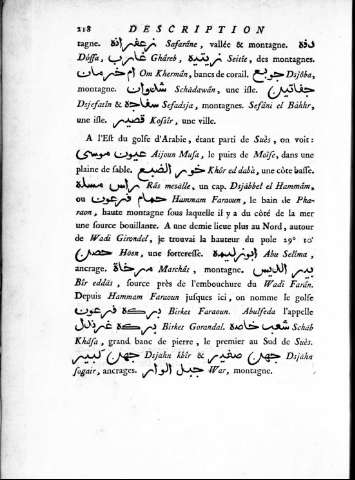 218 DESCRIPTION
tagne. زعفرانة Safarâne, vallée & montagne. دفة
Dóffa, غارب Ghâreb, زيتية Seitîe, des montagnes.
ام خرمان Om Khermân, bancs de corail. جوبع Dsjôba,
montagne. شدوان Schâdawân, une isle. جفاتين
Dsjefatîn & سفاجة Sefadsja, montagnes. Sefâni el Bâhhr,
une isle. قصير Kosêir, une ville.
A l'Est du golfe d'Arabie, étant parti de Suês, on voit:
عيون موسى Aijoun Musa, le puits de Moïse, dans une
plaine de sable. خور الضبع Khôr ed dabà, une côte basse.
راس مسلة Râs mesálle, un cap. Dsjábbel el Hammâm,
ou حمام فرعون Hammam Faraoun, le bain de Pha-
raon, haute montagne sous laquelle il y a du côté de la mer
une source bouillante. A une demie lieue plus au Nord, autour
de Wadi Girondel, je trouvai la hauteur du pole 29° 10'
حصن Hösn, une forteresse. ابو زليمة Abu Selîma,
ancrage. مرخاة Marchâs, montagne. بير الديس
Bîr eddâs, source près de l'embouchure du Wadi Farân.
Depuis Hammam Faraoun jusques ici, on nomme le golfe
بركة فرعون Birket Faraoun. Abulfeda l'appelle
بركة غرندل Birket Gorandal. شعب خاصة Schab
Khâsa, grand banc de pierre, le premier au Sud de Suês.
جهن كبير Dsjahn kbîr & جهن صغير Dsjahn
sogair, ancrages. جبل الوار War, montagne.